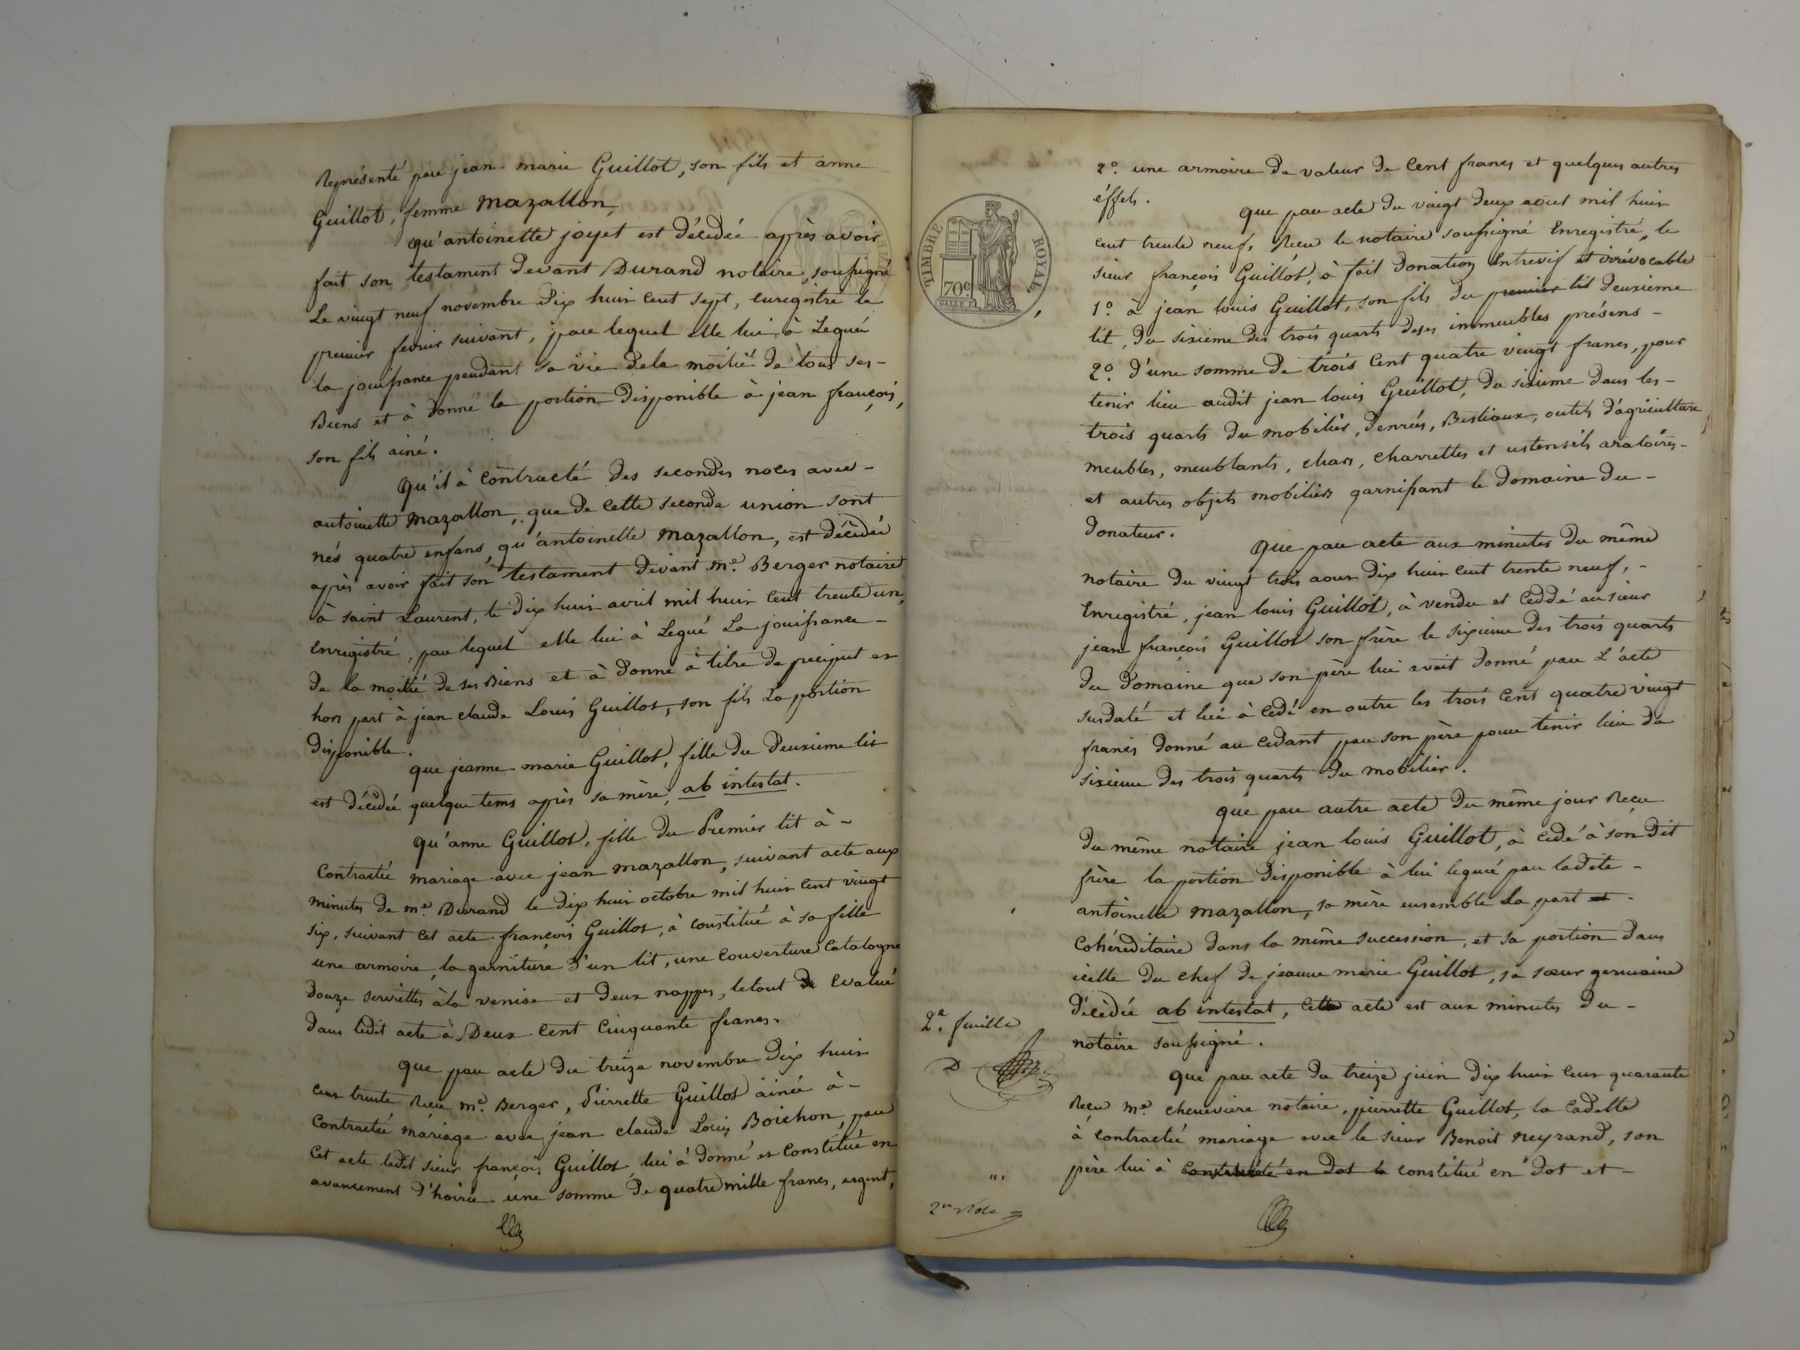 Représenté par jean-marie Guillot, son fils et anne
Guillot, femme Mazallon,
qu'antoinette joyet est décédée après avoir
fait son testament devant Durand notaire, soussigné
Le vingt neuf novembre dix huit cent sept, enregistré le
premier fevrier suivant, par lequel elle lui à Legué
la jouissance pendant sa vie dela moitié de tous ses-
Biens et à donné la portion disponible à jean françois,
son fils ainé.
Qu'il à contracté des secondes noces avec-
antoinette Mazallon, que de cette seconde union sont
nés quatre enfans, qu'antoinette Mazallon, est décédée
après avoir fait son testament devant me. Berger notaire
à Saint Laurent, le dix huit avril mil huit Cent trente un,
Enregistré, par lequel elle lui à Legué La jouissance-
de la moitié de ses Biens et à donné à titre de preciput et
hors part à jean claude Louis Guillot, son fils La portion
disponible.
que jeanne-marie Guillot, fille du deuxieme lit
est décédée quelque tems après sa mère, ab intestat.
qu'anne Guillot, fille du Premier lit à-
Contractée mariage avec jean Mazallon, suivant acte aux
minutes de me. Durand le dix huit octobre mil huit Cent vingt
six, suivant cet acte françois Guillot, à constitué à sa fille
une armoire, la garniture d'un lit, une couverture Catalogne
douze serviettes àla venise et deux nappes, letout de Evalué
dans ledit acte à Deux Cent Cinquante francs.
que par acte du treize novembre dix huit
cent trente Reçu me. Berger, Pierrette Guillot ainée à-
Contractée mariage avec jean claude Louis Boichon, par
Cet acte ledit sieur françois Guillot lui à donné et Constitué en
avancement d'hoirie une somme de quatre mille francs, argent,
2o. une armoire de valeur de Cent francs et quelques autres
éffets.
TIMBRE ROYAL
70c
que par acte du vingt deux aout mil huit
cent trente neuf, Reçu le notaire soussigné Enregistré, le
sieur françois Guillot, à fait Donation Entrevif et irrévocable
1o. à jean louis Guillot, son fils du premier lit deuxieme
lit, du sixieme des trois quarts deses immeubles présens-
2o. d'une somme de trois Cent quatre vingt francs, pour
tenir lieu audit jean louis Guillot, du sixieme dans les-
trois quarts du mobilier, denrées, Bestiaux, outils d'agriculture,
meubles, meublants, chars, charrettes et ustensils aratoires-
et autres objets mobiliers garnissant le domaine du-
donateur.
Que par acte aux minutes du même
notaire du vingt trois aout dix huit Cent trente neuf,-
Enregistré, jean louis Guillot, à vendu et Ceddé au sieur
jean françois Guillot son frère le sixieme des trois quarts
du Domaine que son père lui avait donné par L'acte
susdaté et lui à Cédé en outre les trois Cent quatre vingt
francs donné au Cedant par son père pour tenir lieu du
sixieme des trois quarts du mobilier.
que par autre acte du même jour Reçu
du même notaire jean louis Guillot, à Cedé à son dit
frère la portion disponible à lui leguée par ladite-
antoinette Mazallon, sa mère ensemble La part et-
Cohéreditaire dans la même succession, et sa portion dans
icelle du chef de jeanne marie Guillot, sa sœur germaine
décédée ab intestat, Cette acte est aux minutes du-
notaire soussigné.
2e. feuille
D
que par acte du treize juin dix huit cent quarante
Reçu me. Cheneviere notaire, pierrette Guillot, la Cadette
à contractée mariage avec le sieur Benoit Neyrand, son
père lui à contracté en dot la constitué en dot et-
2e Role